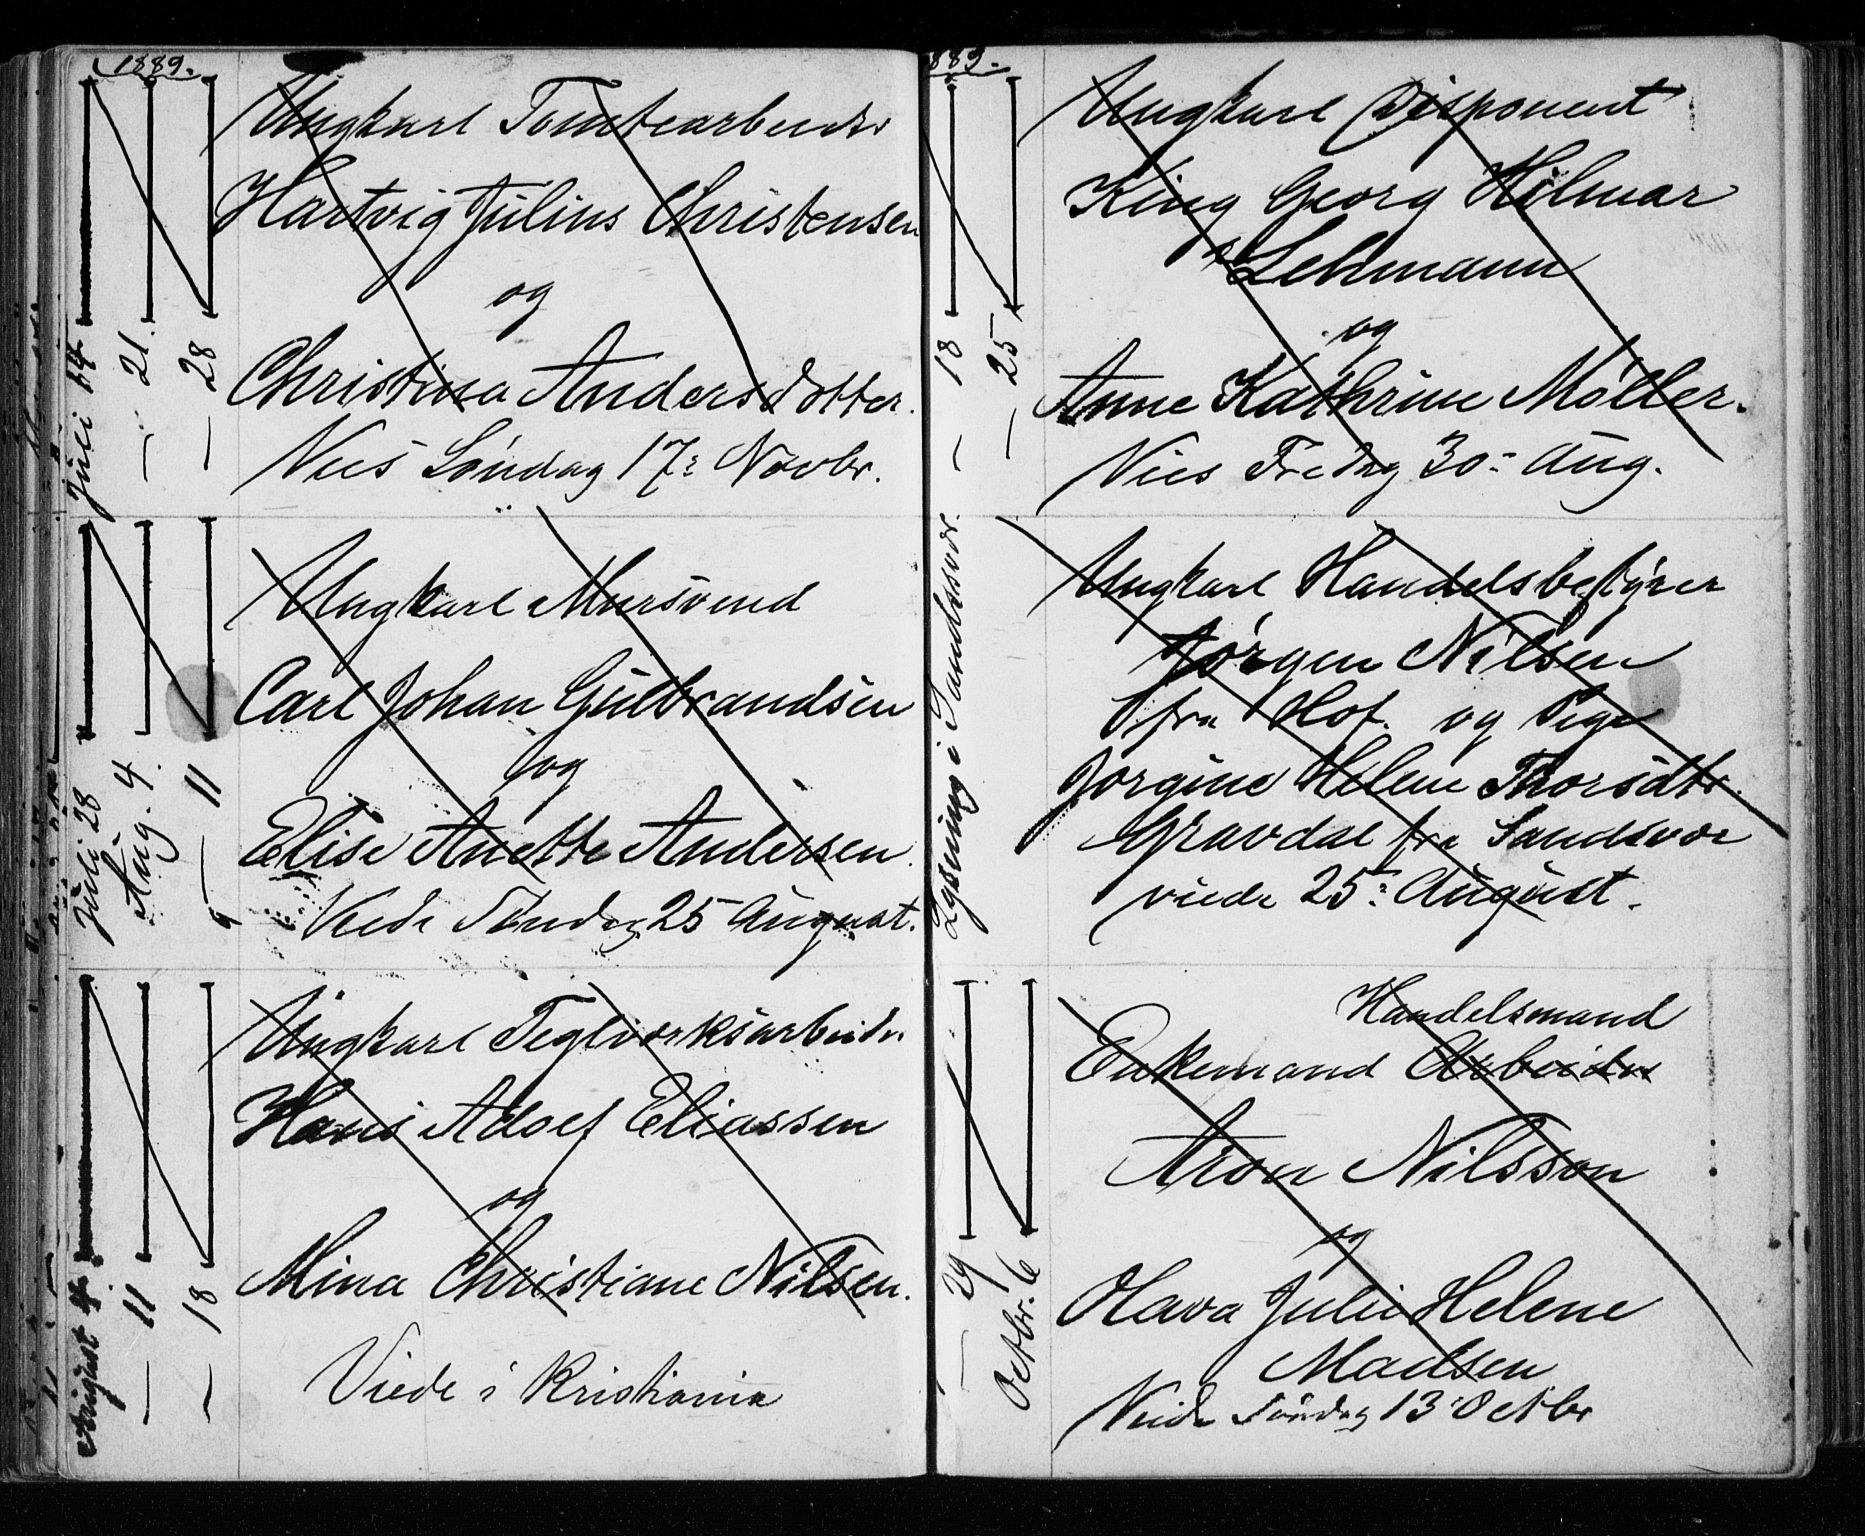 1889.
Juli 14
— 21.
— 28
Ungkarl Tomtearbeider
Hartvig Julius Christensen
og
Christina Andersdotter.
Vies Søndag 17: Novbr.
Juli 28
Aug. 4
— 11
Ungkarl Mursvend
Carl Johan Gulbrandsen
og
Elise Anette Andersen.
Viede Søndag 25 August.
August 4
— 11
— 18
Ungkarl Teglværksarbeider
Hans Adolf Eliassen
og
Mina Christiane Nilsen.
Viede i Kristiania
889.
— 18
— 25
Ungkarl Disponent
King Georg Hilmar
Lehmann
og
Anne Kathrine Møller.
Vies Fredag 30: Aug.
Lysning i Sandsvær.
Ungkarl Handelsbestyrer
Jørgen Nilsen
fra Hof. og Pige
Jørgine Helene Thorsdtr.
Gravdal fra Sandsvær
viede 25: August.
— 29
Octbr. 6
Handelsmand
Enkemand Arbeider
Aron Nilsson
og
Olava Julie Helene
Madsen
Viede Søndag 13 Octbr